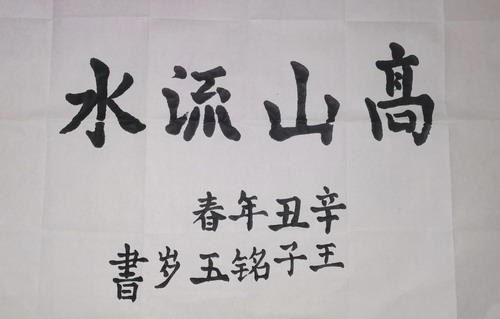 髙山流水
辛丑年春
王子铭五岁書